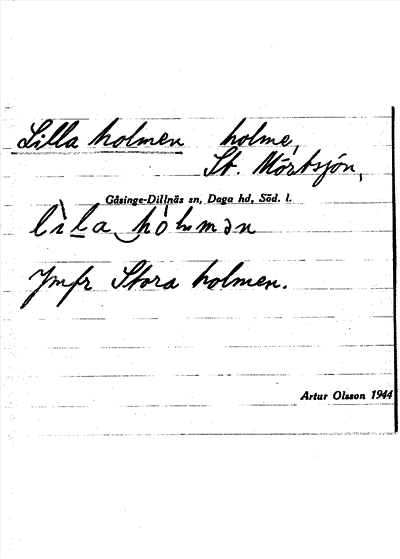 Lilla holmen holme,
St. Mörtsjön,
Gåsinge-Dillnäs sn, Daga hd, Söd. l.
Jmfr Stora holmen.
Artur Olsson 1944